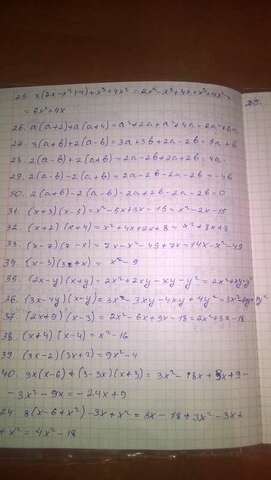 25. x(2x-x²+4)+x³+4x² = 2x²-x³+4x+x³+4x² =
= 6x²+4x
26. a(a+2)+a(a+4) = a²+2a+a²+4a = 2a²+6a
27. 3(a+b)+2(a-b) = 3a+3b+2a-2b = 5a+b
28. 2(a-b)+2(a+b) = 2a-2b+2a+2b = 4a
29. 2(a-b)-2(a+b) = 2a-2b-2a-2b = -4b
30. 2(a+b)-2(a-b)
31. (x+3)(x-5) = x²-5x+3x-15 = x²-2x-15
32. (x+2)(x+4) = x²+4x+2x+8 = x²+6x+8
33. (x-7)(7-x) = 7x-x²-49+7x = 14x-x²-49
(x-3)(3+x) = x²-9
35. (2x-y)(x+y) = 2x²+2xy-xy-y² = 2x²+xy-y²
36. (3x-4y)(x-y) = 3x²-3xy-4xy+4y²
37. (2x+9)(x-3) = 2x²-6x+9x-18
38. (x+4)(x-4) = x²-16
39. (3x-2)(3x+2) = 9x²-4
40. 3x(x-6)+(3-3x)(x+3) = 3x²-18x+3x+9-
-3x²-9x = -24x+9
24. 3(x-6+x²)-3x+x² = 3x-18+3x²-3x+
+x² = 4x²-18